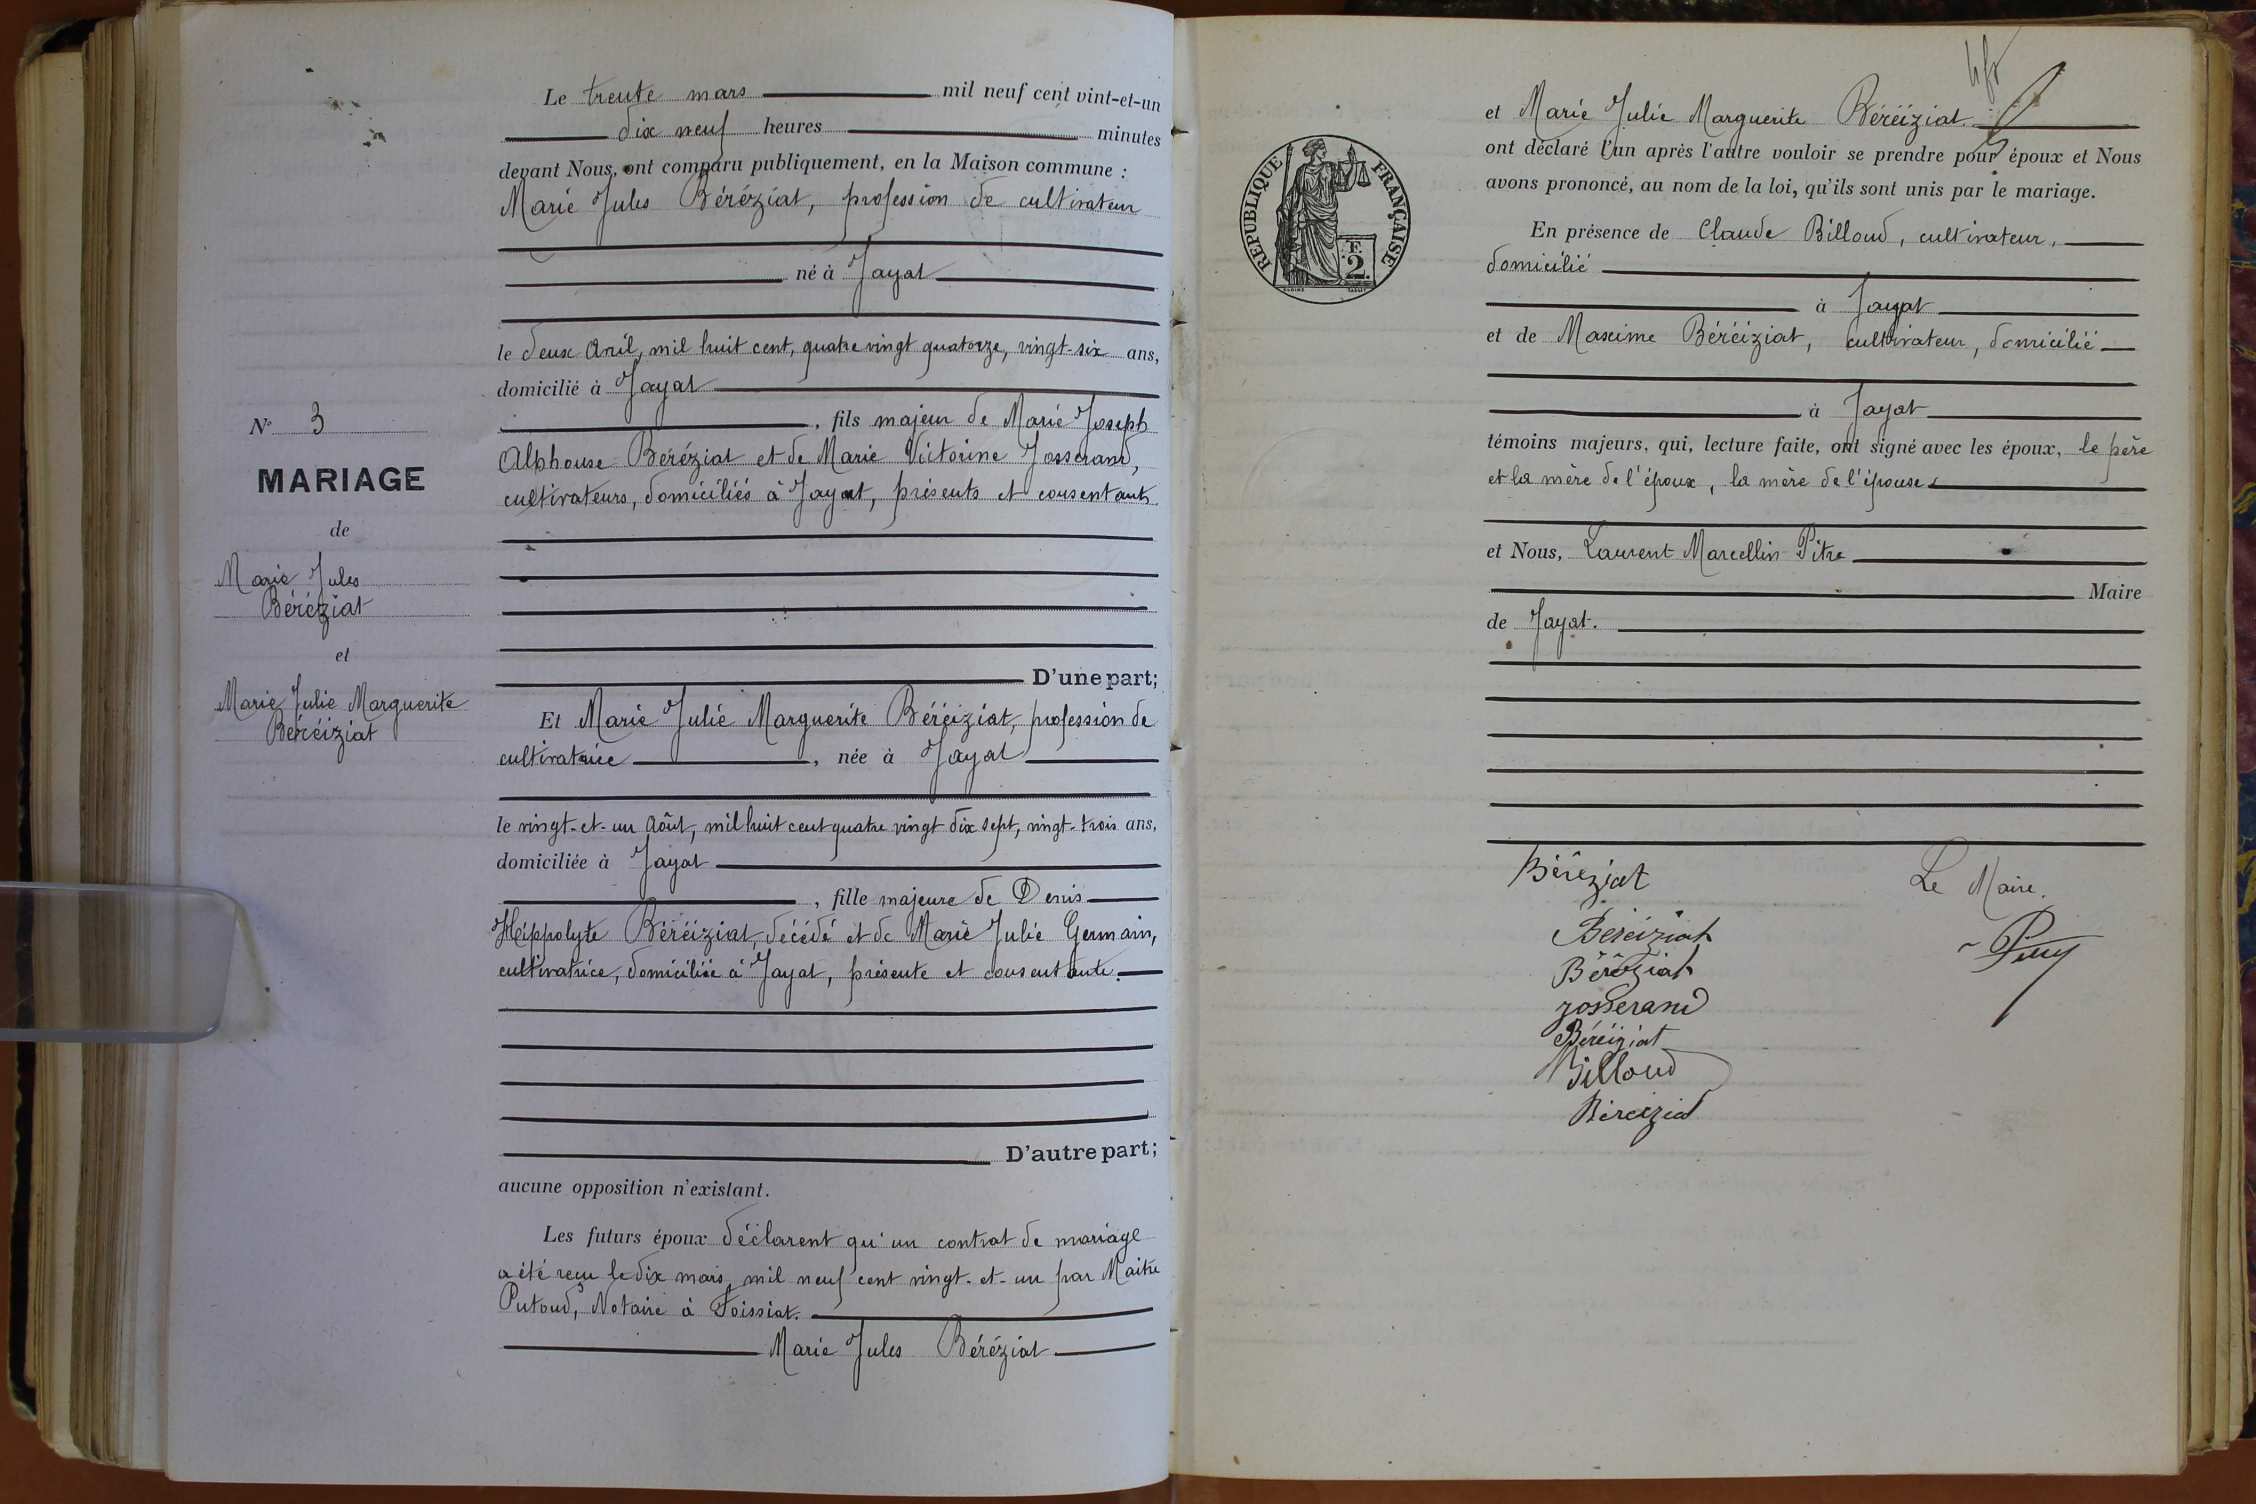 Le trente mars mil neuf cent vint-et-un
dix neuf heures minutes
devant Nous, ont comparu publiquement, en la Maison commune :
Marie Jules Béréziat, profession de cultivateur
né à Jayat
le deux Avril, mil huit cent, quatre vingt quatorze, vingt-six ans,
domicilié à Jayat
N° 3
, fils majeur de Marie Joseph
Alphonse Béréziat et de Marie Victorine Josserand,
MARIAGE
cultivateurs, domiciliés à Jayat, présents et consentants
de
Marie Jules
Béréziat
et
D'une part;
Marie Julie Marguerite
Béréiziat
Et Marie Julie Marguerite Béréiziat, profession de
cultivatrice , née à Jayat
le vingt-et-un Août, mil huit cent quatre vingt dix sept, vingt-trois ans,
domiciliée à Jayat
, fille majeure de Denis
Hippolyte Béréiziat, décédé et de Marie Julie Germain,
cultivatrice, domiciliée à Jayat, présente et consentante.
D'autre part;
aucune opposition n'existant.
Les futurs époux déclarent qu'un contrat de mariage
a été reçu le dix mars, mil neuf cent vingt-et-un par Maitre
Putoud, Notaire à Foissiat.
Marie Jules Béréziat
et Marie Julie Marguerite Béréiziat.
ont déclaré l'un après l'autre vouloir se prendre pour époux et Nous
avons prononcé, au nom de la loi, qu'ils sont unis par le mariage.
REPUBLIQUE FRANÇAISE
F.
2
En présence de Claude Billoud, cultivateur,
domicilié
à Jayat
et de Maxime Béréiziat, cultivateur, domicilié
à Jayat
témoins majeurs, qui, lecture faite, ont signé avec les époux, le père
et la mère de l'époux, la mère de l'épouse
et Nous, Laurent Marcellin Pitre
Maire
de Jayat.
Béréziat
Le Maire.
Béréiziat
Béréziat
Josserand
Béréiziat
Billoud
Béreiziat